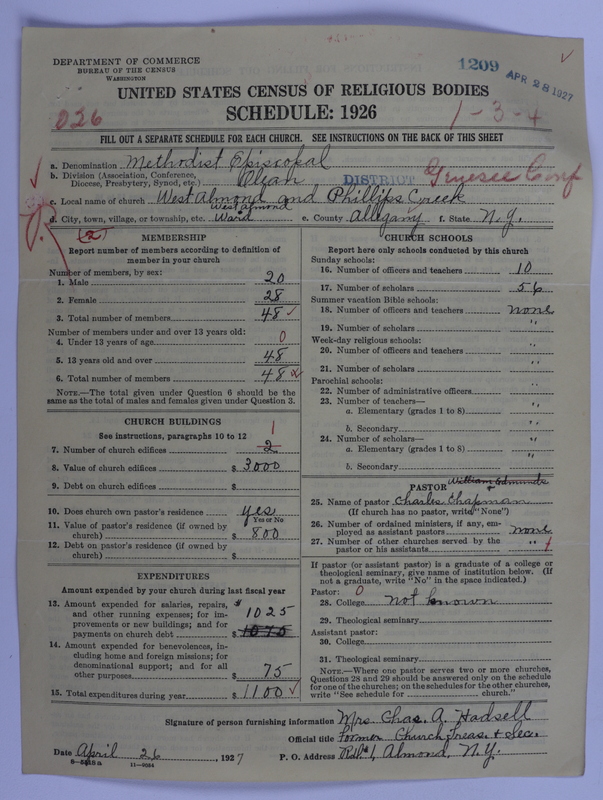 DEPARTMENT OF COMMERCE
BUREAU OF THE CENSUS
WASHINGTON
1209
APR 28 1927
UNITED STATES CENSUS OF RELIGIOUS BODIES
026
SCHEDULE: 1926
1-3-4
FILL OUT A SEPARATE SCHEDULE FOR EACH CHURCH. SEE INSTRUCTIONS ON THE BACK OF THIS SHEET
a. Denomination Methodist Episcopal
b. Division (Association, Conference, Diocese, Presbytery, Synod, etc.) Olean DISTRICT Genesee Conf
c. Local name of church West Almond and Phillips Creek
West Almond
d. City, town, village, or township, etc. Ward e. County Allegany f. State N.Y.
(2) MEMBERSHIP
Report number of members according to definition of member in your church
Number of members, by sex:
1. Male 20
2. Female 28
3. Total number of members 48
Number of members under and over 13 years old:
4. Under 13 years of age 0
5. 13 years old and over 48
6. Total number of members 48
NOTE.—The total given under Question 6 should be the same as the total of males and females given under Question 3.
CHURCH BUILDINGS
See instructions, paragraphs 10 to 12
1
7. Number of church edifices 2
8. Value of church edifices $ 3000
9. Debt on church edifices $
10. Does church own pastor's residence yes
Yes or No
11. Value of pastor's residence (if owned by church) $ 800
12. Debt on pastor's residence (if owned by church) $
EXPENDITURES
Amount expended by your church during last fiscal year
13. Amount expended for salaries, repairs, and other running expenses; for improvements or new buildings; and for payments on church debt $ 1025
1075
14. Amount expended for benevolences, including home and foreign missions; for denominational support; and for all other purposes $ 75
15. Total expenditures during year $ 1100
CHURCH SCHOOLS
Report here only schools conducted by this church
Sunday schools:
16. Number of officers and teachers 10
17. Number of scholars 56
Summer vacation Bible schools:
18. Number of officers and teachers none
19. Number of scholars "
Week-day religious schools:
20. Number of officers and teachers "
21. Number of scholars "
Parochial schools:
22. Number of administrative officers "
23. Number of teachers—
a. Elementary (grades 1 to 8) "
b. Secondary "
24. Number of scholars—
a. Elementary (grades 1 to 8) "
b. Secondary "
PASTOR William Edmunds
25. Name of pastor Charles Chapman
(If church has no pastor, write "None")
26. Number of ordained ministers, if any, employed as assistant pastors none
27. Number of other churches served by the pastor or his assistants " 1
If pastor (or assistant pastor) is a graduate of a college or theological seminary, give name of institution below. (If not a graduate, write "No" in the space indicated.)
Pastor: 0
28. College not known
29. Theological seminary
Assistant pastor:
30. College
31. Theological seminary
NOTE.—Where one pastor serves two or more churches, Questions 28 and 29 should be answered only on the schedule for one of the churches; on the schedules for the other churches, write "See schedule for church."
Signature of person furnishing information Mrs Chas. A. Hadsell
Official title Former Church Treas. & Sec.
Date April 26, 1927 P. O. Address Rd#1, Almond, N.Y.
11—9084